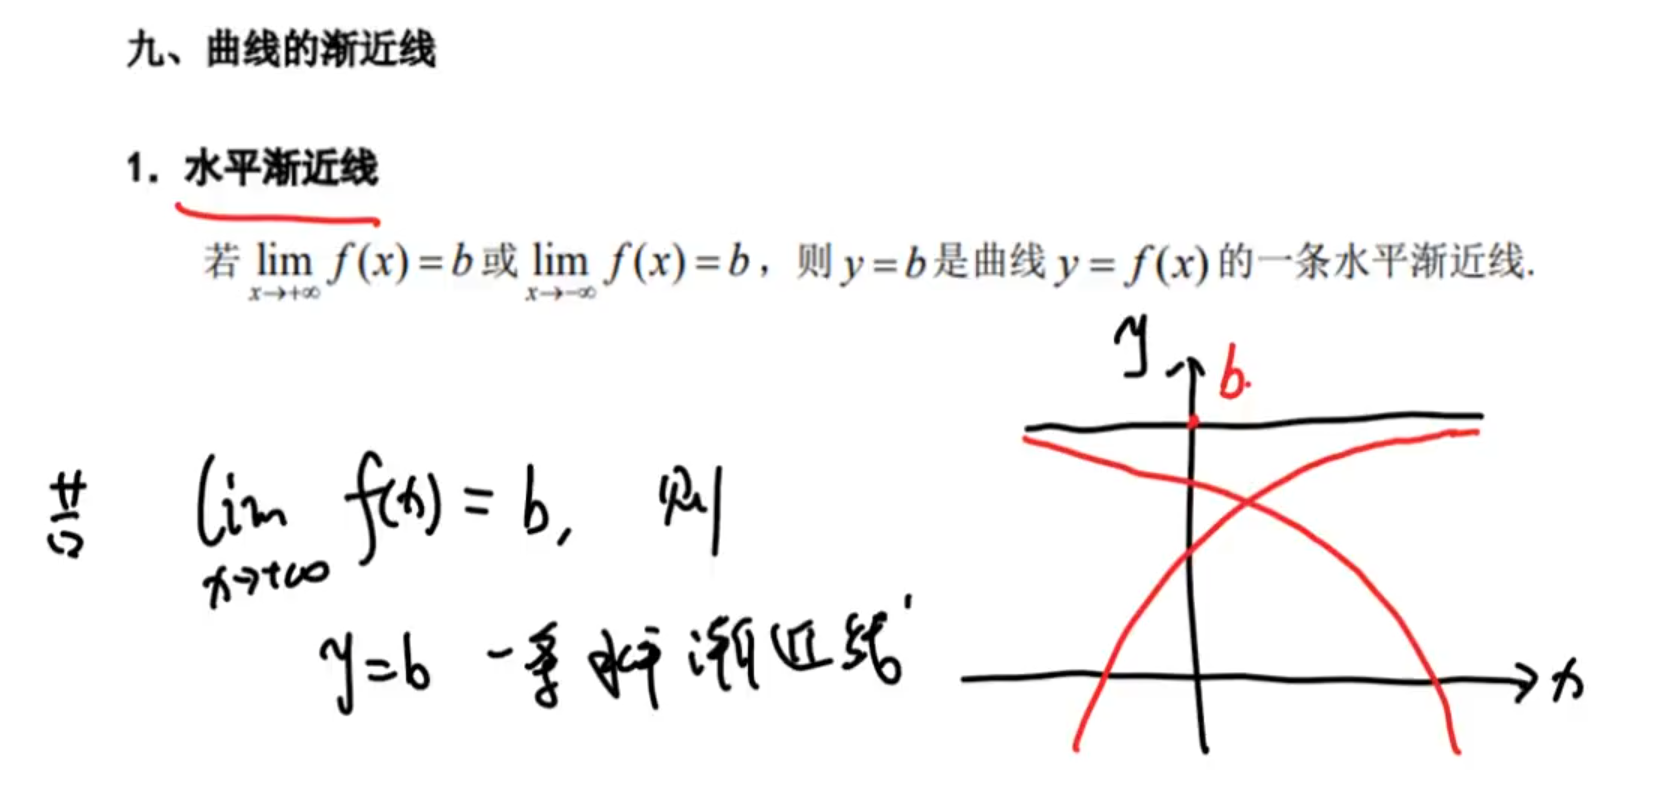 九、曲线的渐近线
1. 水平渐近线
若 lim f(x)=b 或 lim f(x)=b，则 y=b 是曲线 y=f(x) 的一条水平渐近线.
x→+∞ x→−∞
y
b.
若 lim f(x) = b, 则
x→+∞
y=b 一条水平渐近线
x